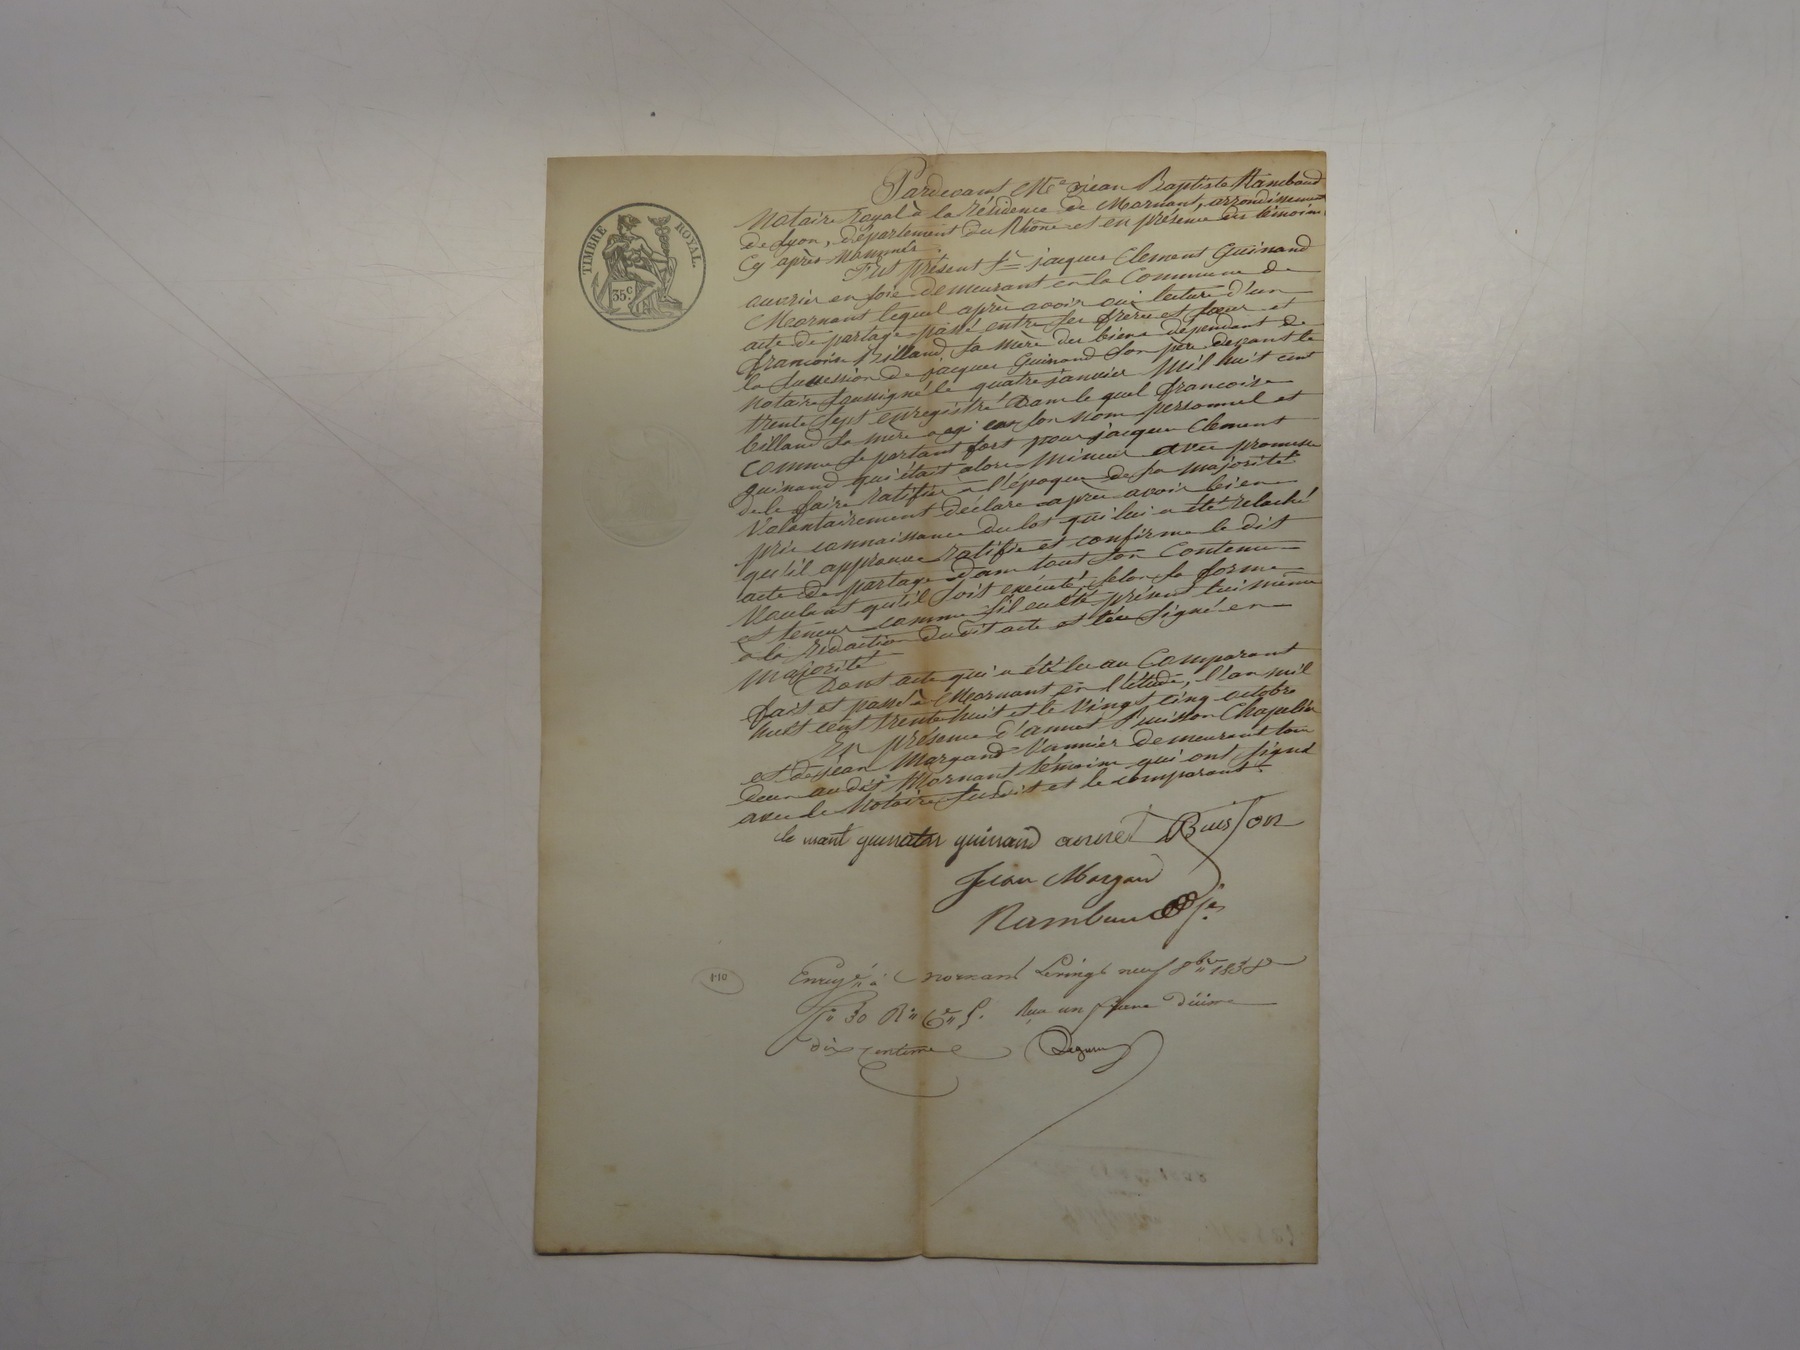 TIMBRE ROYAL.
35 c.
Pardevant Me Jean Baptiste Rambaud
Notaire royal à la résidence de Mornant, arrondissement
de Lyon, département du Rhône et en présence des témoins
Cy après Nommés
Fut présent Sr jacques Clement Guinand
ouvrier en soie demeurant en la Commune de
Mornant lequel après avoir oui lecture d'un
acte de partage passé entre ses frères et sœur et
françoise Billand sa mère des biens dépendant de
la succession de jacques Guinand son père devant le
Notaire soussigné le quatre janvier Mil huit cent
trente sept enregistré dans le quel françoise
billand sa mère a agi en son nom personnel et
comme se portant fort pour jacques Clement
guinand qui était alors Mineur avec promesse
de le faire ratifier à l'époque de sa majorité
Volontairement déclare après avoir bien
pris connaissance du lot qui lui a été relaché
qu'il approuve ratifie et confirme le dit
acte de partage dans tout son Contenu
Voulant qu'il soit exécuté selon sa forme
et teneur comme s'il eut été présent lui même
à la rédaction du dit acte et l'eu signé en
majorité
Dont acte qui a été lu au Comparant
fait et passé à Mornant en l'étude, l'an mil
huit cent trente huit et le Vingt cinq octobre
En présence d'annet Buisson Chapelier
et de jean Margand Vannier demeurant tous
deux au dit Mornant témoins qui ont signé
avec le Notaire susdit et le comparant.
guinand annet Buisson
jean Morgand
Rambaud
Enregé à Mornant le vingt neuf 8bre 1838
fo 30 Ro Ce 5. Reçu un franc décime
dix centimes